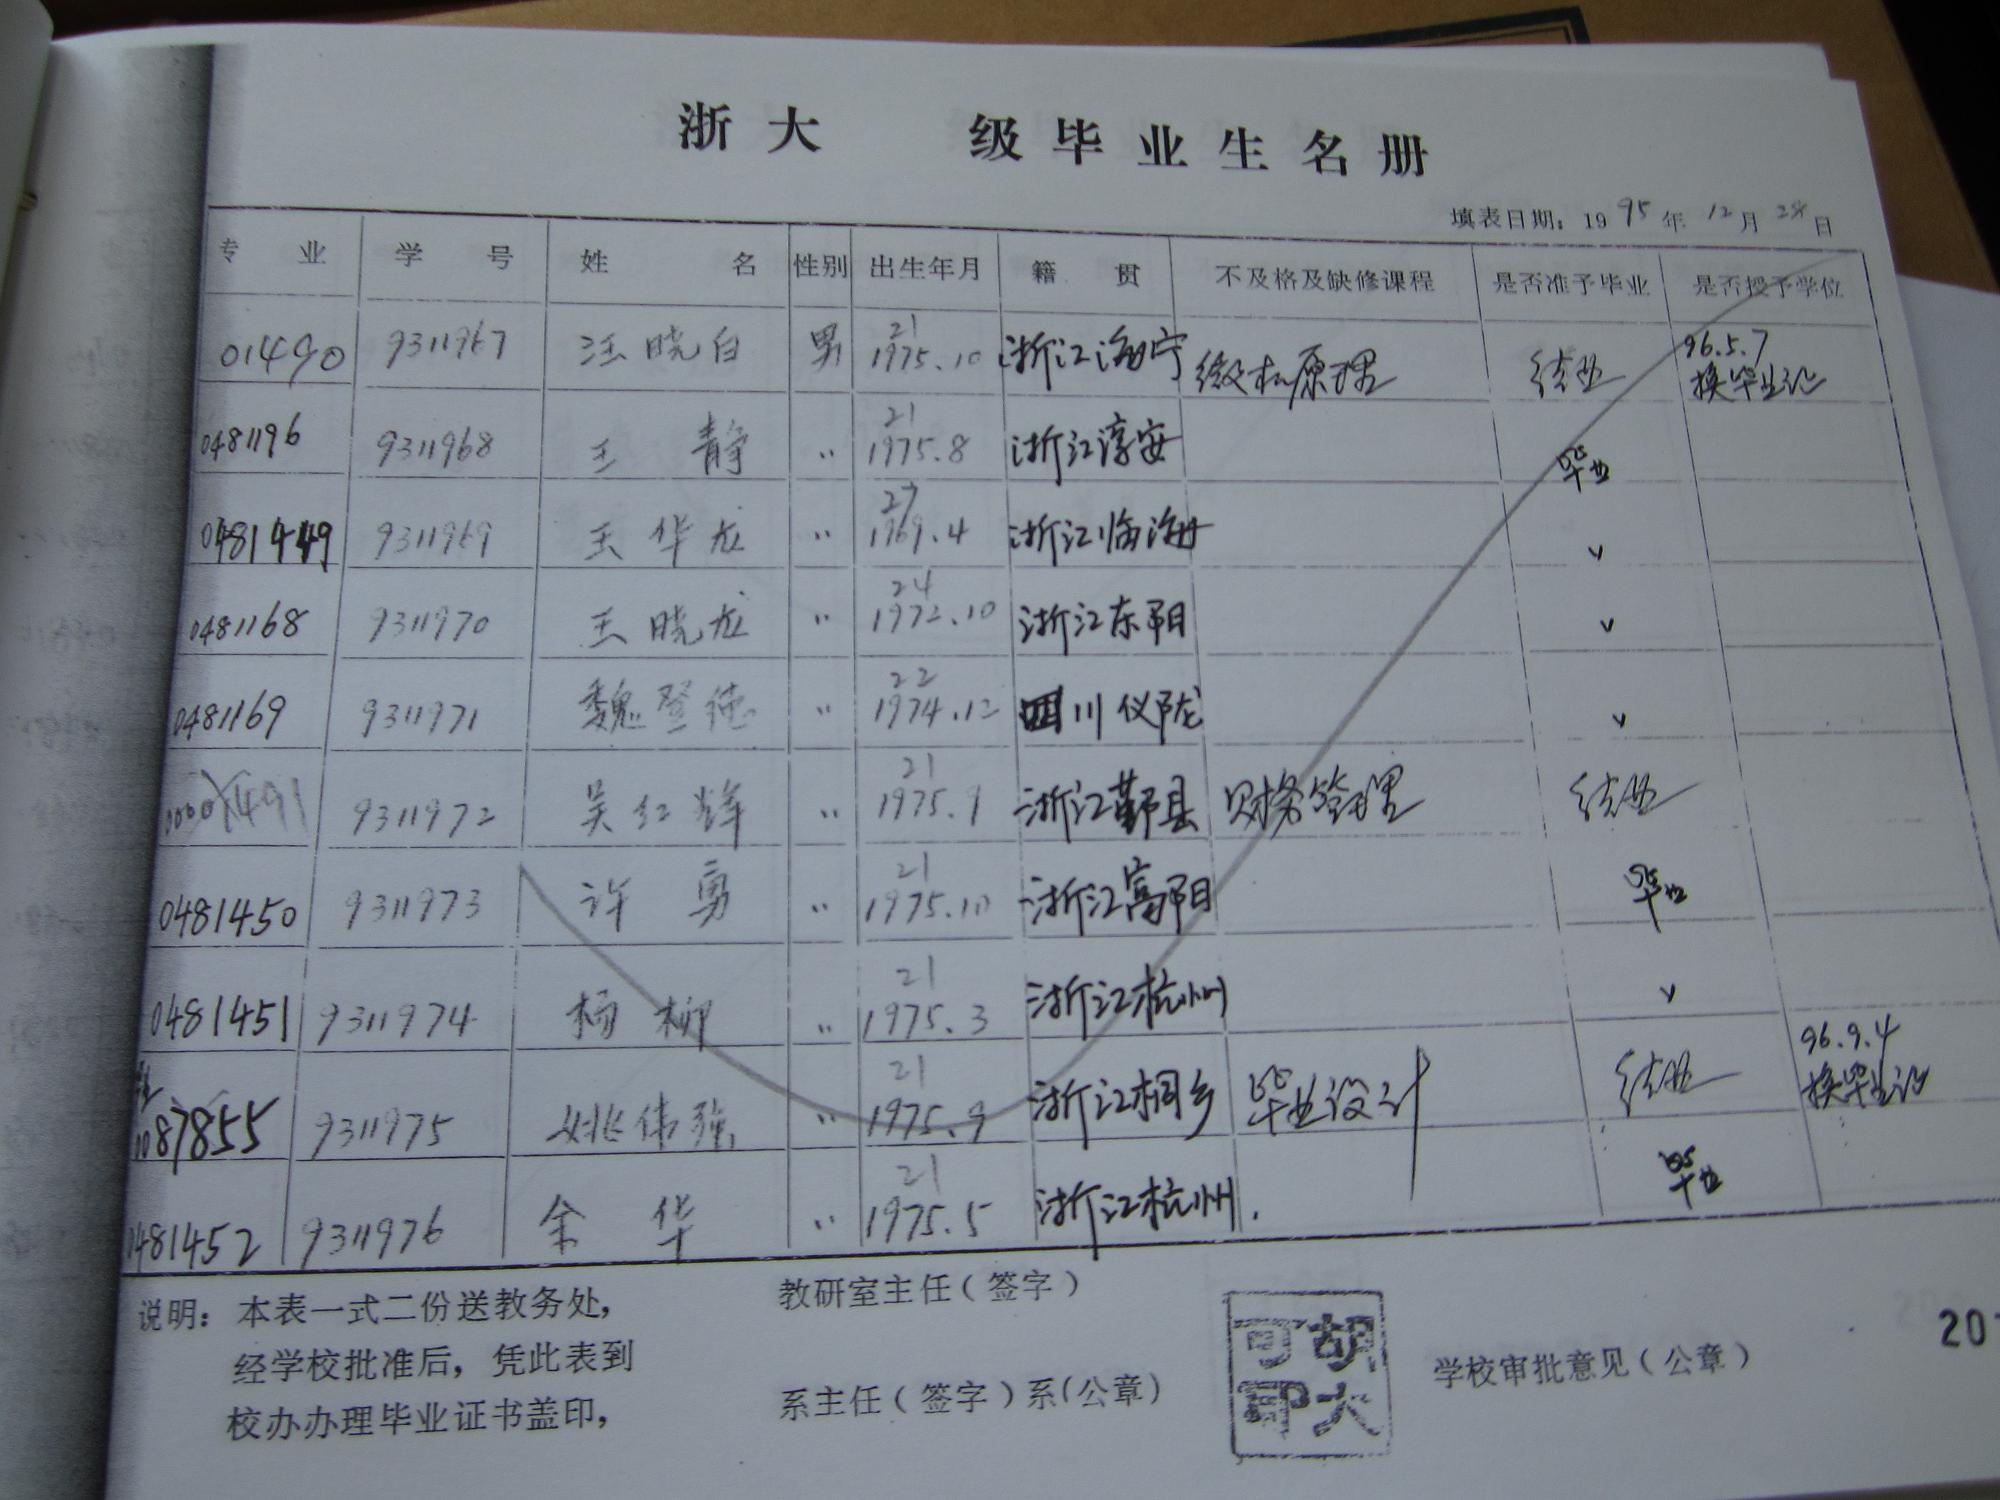 浙大 级毕业生名册
填表日期：1995年12月28日
专业 学号 姓名 性别 出生年月 籍贯 不及格及缺修课程 是否准予毕业 是否授予学位
01490 9311967 汪晓白 男 21 1975.10 浙江海宁 微机原理 结业 96.5.7 换毕业证
0481196 9311968 王静 〃 21 1975.8 浙江淳安 毕业
0481449 9311969 王华龙 〃 27 1969.4 浙江临海 v
0481168 9311970 王晓龙 〃 24 1972.10 浙江东阳 v
0481169 9311971 魏登德 〃 22 1974.12 四川仪陇 v
9311972 吴红辉 〃 21 1975.9 浙江鄞县 财务管理 结业
0481450 9311973 许勇 〃 21 1975.10 浙江富阳 毕业
0481451 9311974 杨柳 〃 21 1975.3 浙江杭州 v
0087855 9311975 姚伟强 〃 21 1975.9 浙江桐乡 毕业设计 结业 96.9.4 换毕业证
0481452 9311976 余华 〃 21 1975.5 浙江杭州. 毕业
说明：本表一式二份送教务处，
经学校批准后，凭此表到
校办办理毕业证书盖印，
教研室主任（签字）
系主任（签字）系（公章）
学校审批意见（公章）
20